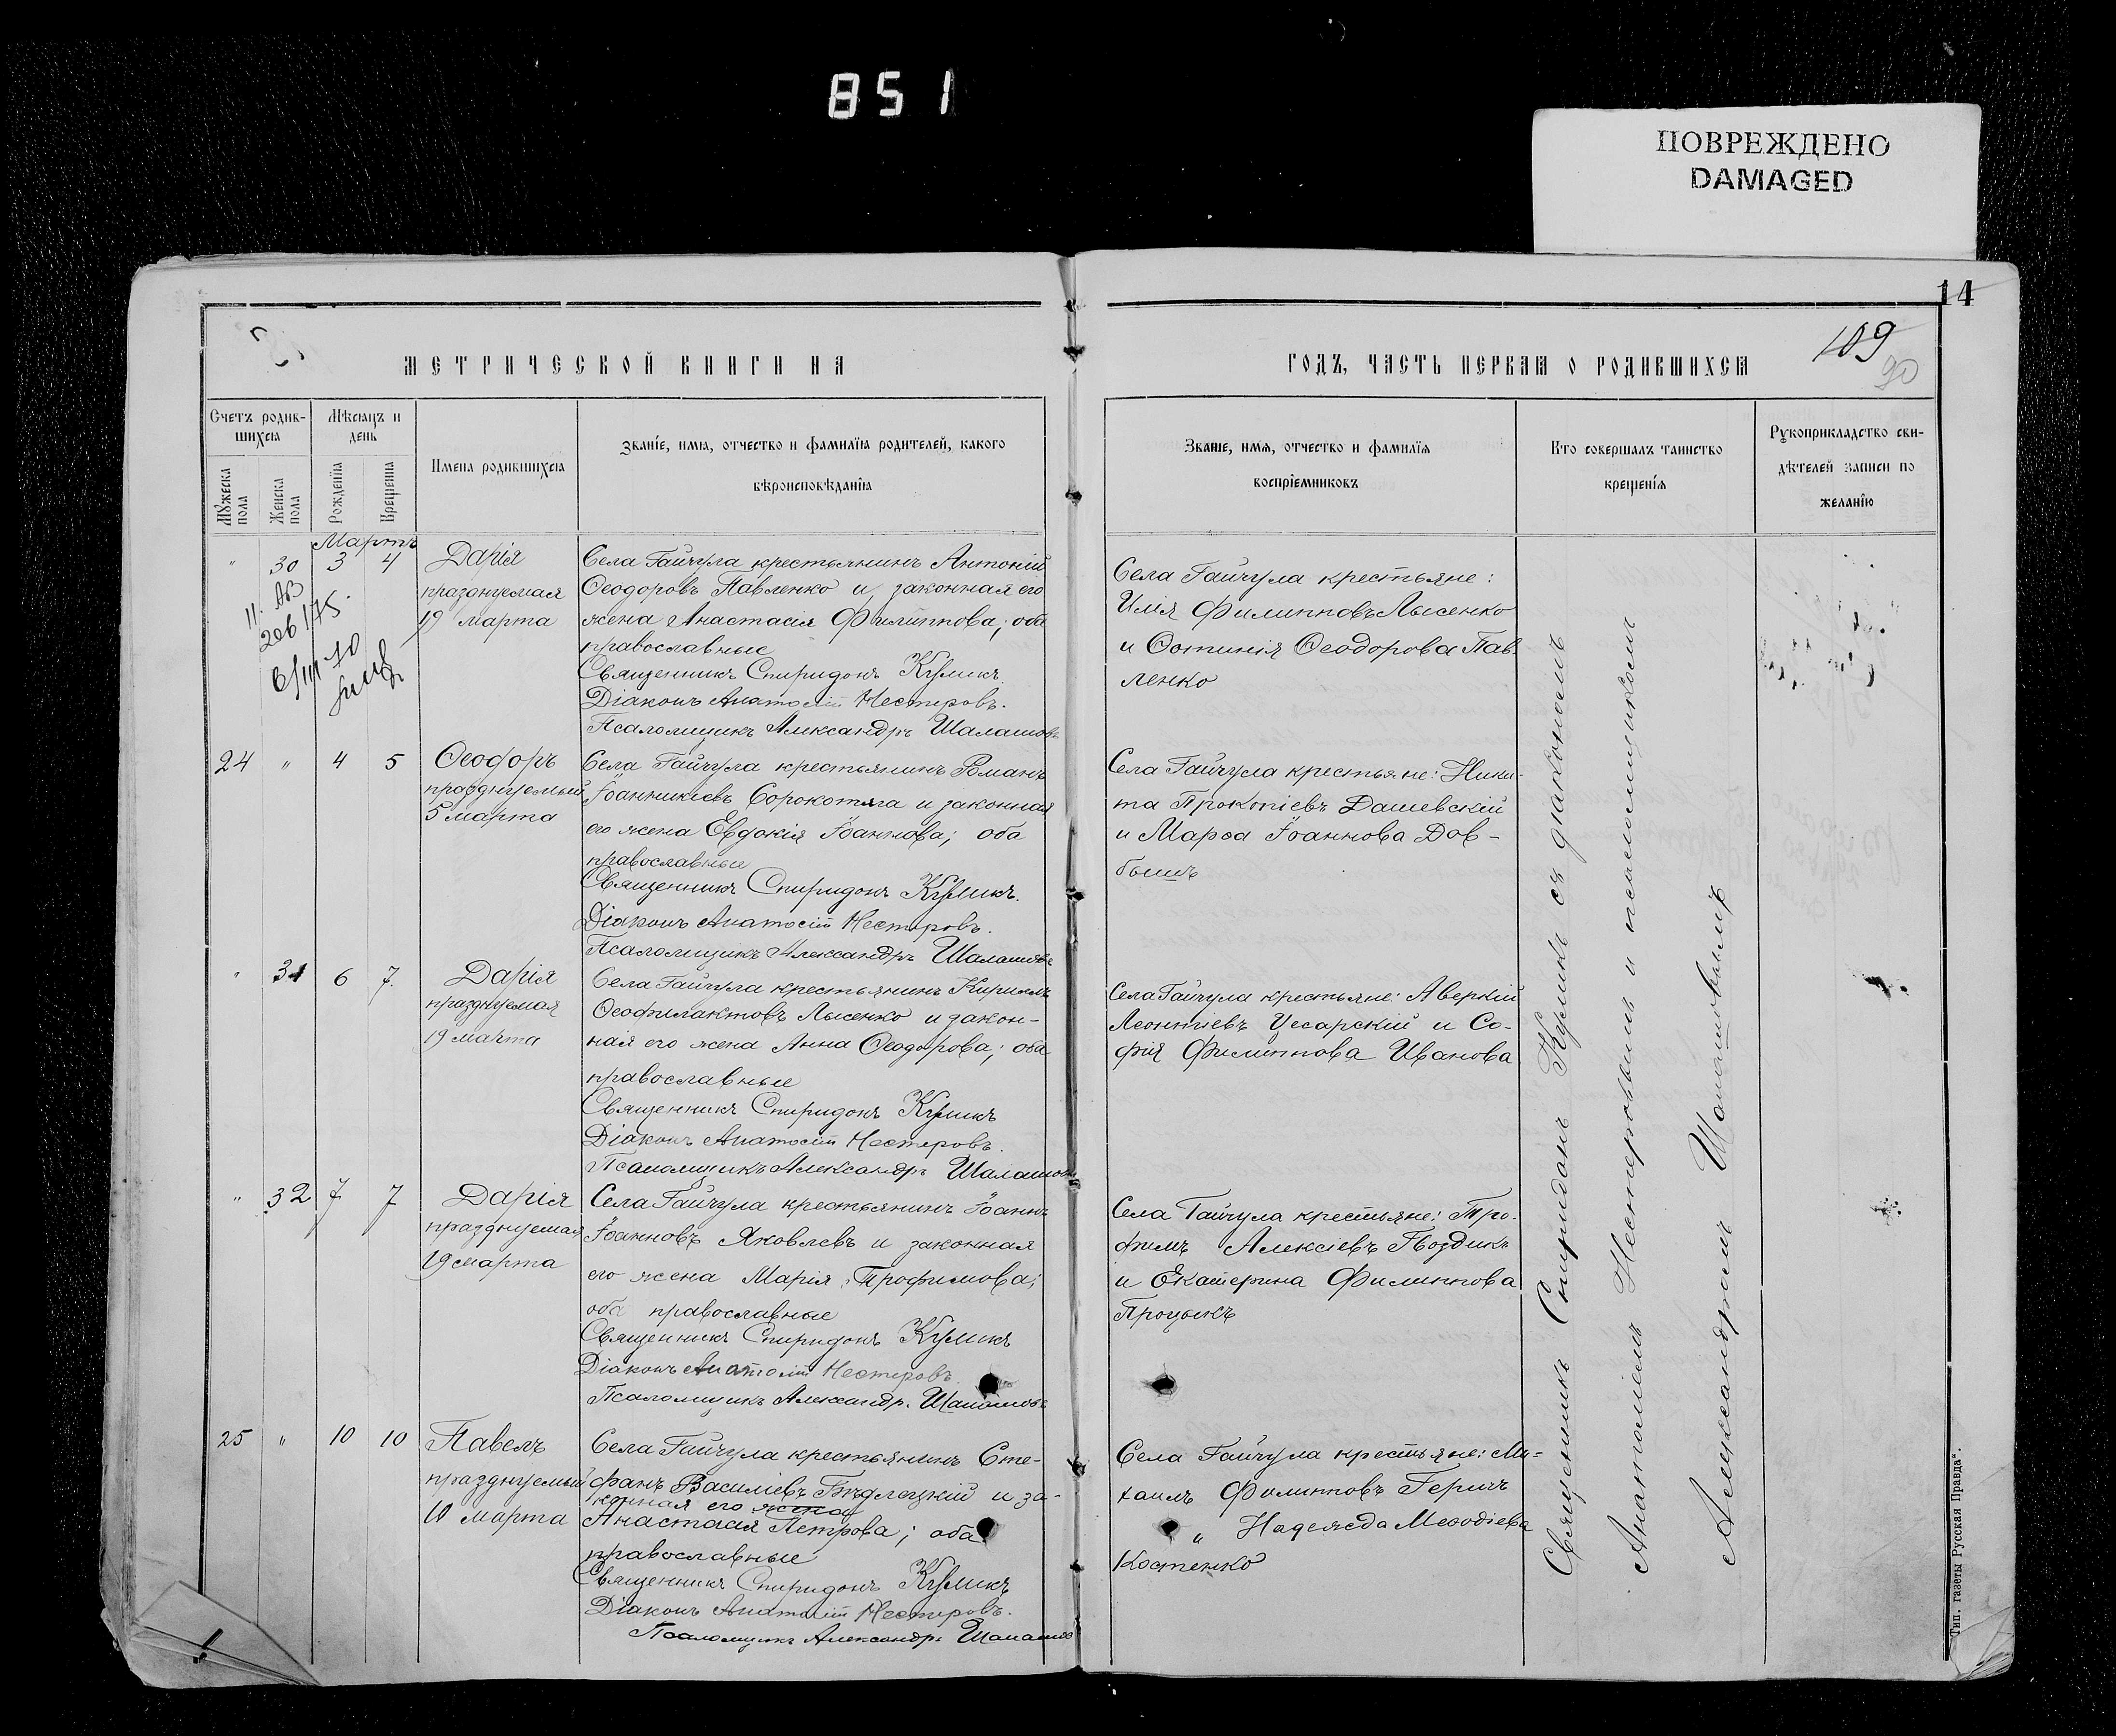 851
ПОВРЕЖДЕНО
DAMAGED
14
109
90
МЕТРИЧЕСКОЙ КНИГИ НА
ГОДЪ, ЧАСТЬ ПЕРВАЯ О РОДИВШИХСЯ
Счетъ родив-
шихся
Мѣсяцъ и
день
Имена родившихся
Званіе, имя, отчество и фамилія родителей, какого
вѣроисповѣданія
Мужеска пола
Женска пола
Рожденія
Крещенія
Званіе, имя, отчество и фамилія
воспріемниковъ
Кто совершалъ таинство
крещенія
Рукоприкладство сви-
дѣтелей записи по
желанію
Мартъ
" 30 3 4
Дарія
празднуемая
19 марта
Села Гайчула крестьянинъ Антоній
Ѳеодоровъ Павленко и законная его
жена Анастасія Филиппова; оба
православные
Священникъ Спиридонъ Куликъ.
Діаконъ Анатолій Нестеровъ.
Псаломщикъ Александръ Шалашовъ
Села Гайчула крестьяне:
Илія Филипповъ Лысенко
и Фотинія Ѳеодорова Пав-
ленко
24 " 4 5
Ѳеодоръ
празднуемый
5 марта
Села Гайчула крестьянинъ Романъ
Іоанникіевъ Сорокотяга и законная
его жена Евдокія Іоаннова; оба
православные
Священникъ Спиридонъ Куликъ.
Діаконъ Анатолій Нестеровъ.
Псаломщикъ Александръ Шалашовъ
Села Гайчула крестьяне: Ники-
та Прокопіевъ Дашевскій
и Марѳа Іоаннова Дов-
бышъ
" 31 6 7.
Дарія
празднуемая
19 марта
Села Гайчула крестьянинъ Кириллъ
Ѳеофилактовъ Лысенко и закон-
ная его жена Анна Ѳеодорова; оба
православные
Священникъ Спиридонъ Куликъ
Діаконъ Анатолій Нестеровъ.
Псаломщикъ Александръ Шалашовъ
Села Гайчула крестьяне: Аверкій
Леонтіевъ Цесарскій и Со-
фія Филиппова Иванова
" 32 7 7
Дарія
празднуемая
19 марта
Села Гайчула крестьянинъ Іоаннъ
Іоанновъ Яковлевъ и законная
его жена Марія Трофимова;
оба православные
Священникъ Спиридонъ Куликъ
Діаконъ Анатолій Нестеровъ.
Псаломщикъ Александръ Шалашовъ
Села Гайчула крестьяне: Тро-
фимъ Алексіевъ Гвоздикъ
и Екатерина Филиппова
Процыкъ
25 " 10 10
Павелъ
празднуемый
10 марта
Села Гайчула крестьянинъ Сте-
фанъ Василіевъ Бѣдлецкій и за-
конная его жена
Анастасія Петрова; оба
православные
Священникъ Спиридонъ Куликъ
Діаконъ Анатолій Нестеровъ.
Псаломщикъ Александръ Шалашов
Села Гайчула крестьяне: Ми-
хаилъ Филипповъ Геричъ
" Надежда Меѳодіева
Костенко
Священникъ Спиридонъ Куликъ съ діакономъ
Анатоліемъ Нестеровымъ и псаломщикомъ
Александромъ Шалашовымъ
Тип. газеты Русская Правда".